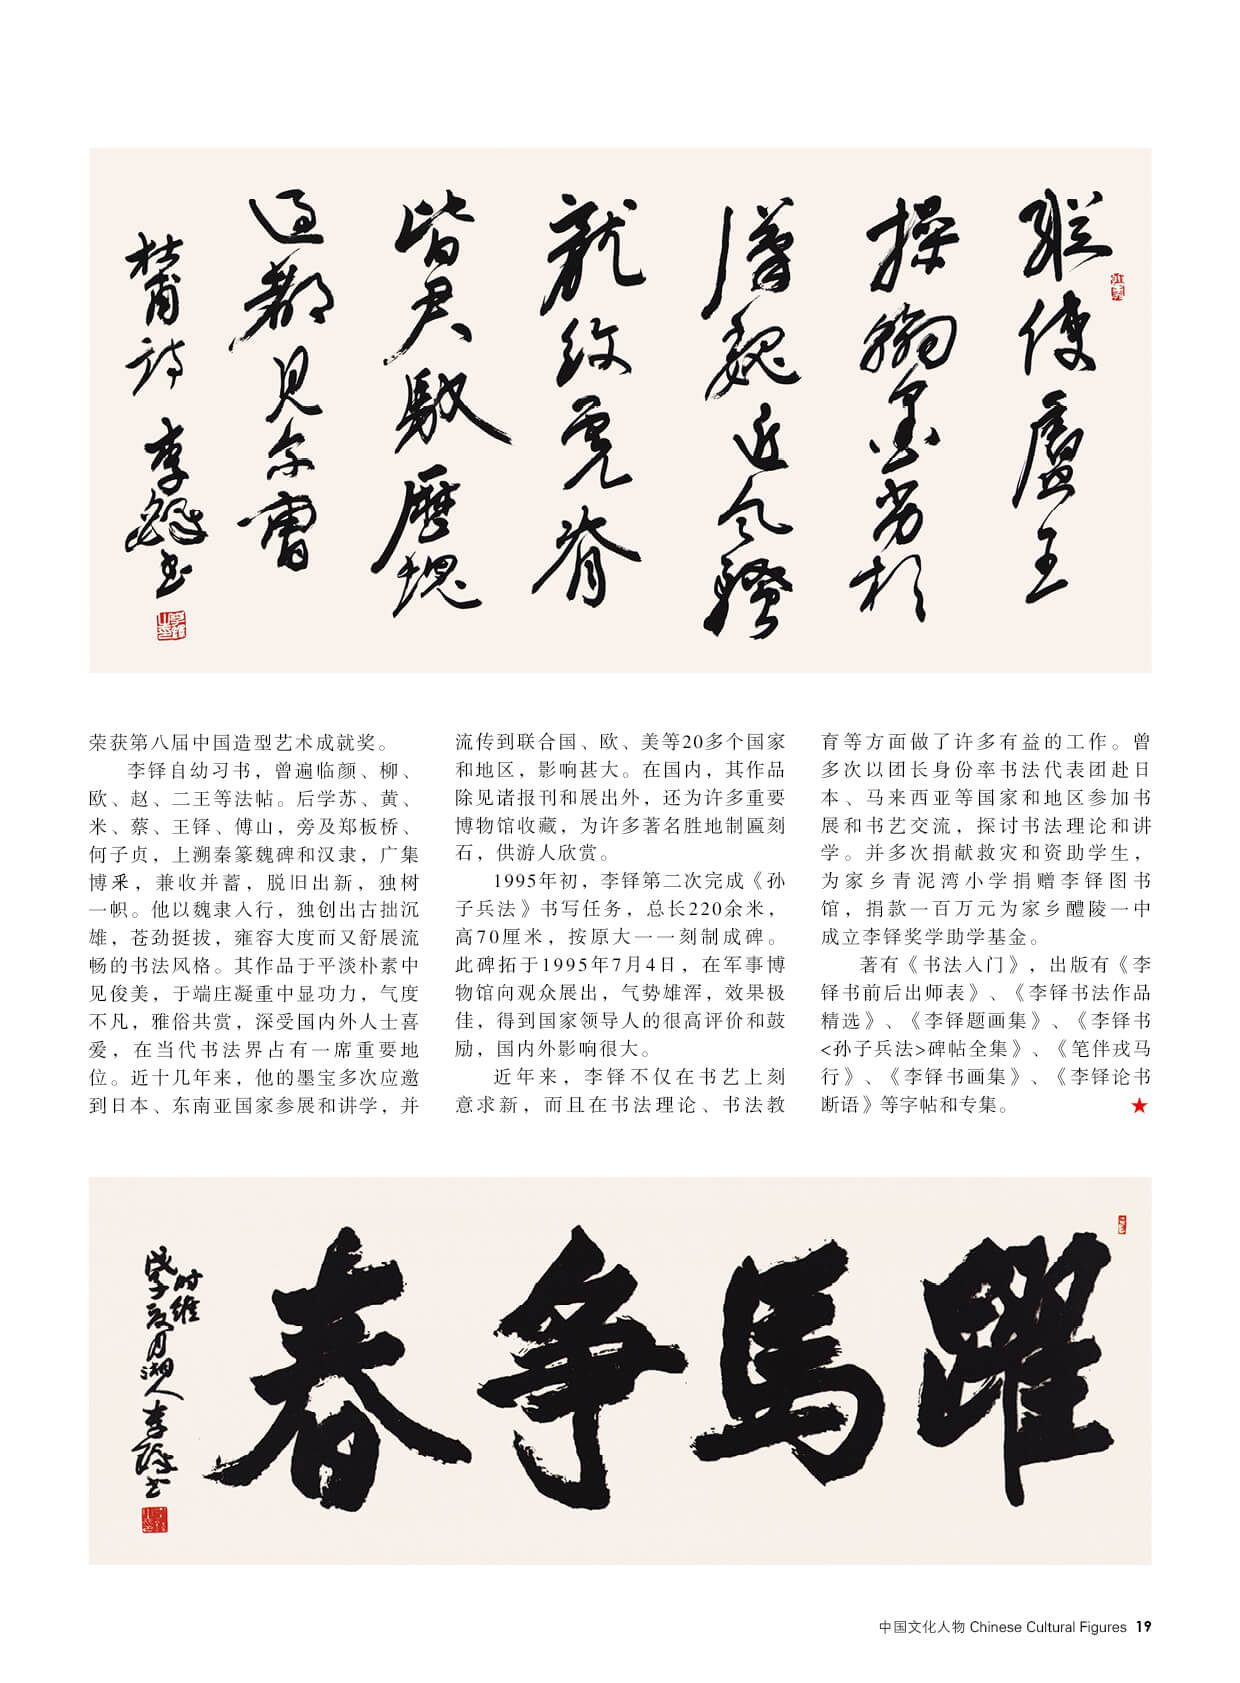 縱使盧王
操翰墨劣於
漢魏近風騷
龍紋虎脊
皆君馭歷塊
過都見爾曹
杜甫詩 李鐸书
荣获第八届中国造型艺术成就奖。
李铎自幼习书，曾遍临颜、柳、
欧、赵、二王等法帖。后学苏、黄、
米、蔡、王铎、傅山，旁及郑板桥、
何子贞，上溯秦篆魏碑和汉隶，广集
博釆，兼收并蓄，脱旧出新，独树
一帜。他以魏隶入行，独创出古拙沉
雄，苍劲挺拔，雍容大度而又舒展流
畅的书法风格。其作品于平淡朴素中
见俊美，于端庄凝重中显功力，气度
不凡，雅俗共赏，深受国内外人士喜
爱，在当代书法界占有一席重要地
位。近十几年来，他的墨宝多次应邀
到日本、东南亚国家参展和讲学，并
流传到联合国、欧、美等20多个国家
和地区，影响甚大。在国内，其作品
除见诸报刊和展出外，还为许多重要
博物馆收藏，为许多著名胜地制匾刻
石，供游人欣赏。
1995年初，李铎第二次完成《孙
子兵法》书写任务，总长220余米，
高70厘米，按原大一一刻制成碑。
此碑拓于1995年7月4日，在军事博
物馆向观众展出，气势雄浑，效果极
佳，得到国家领导人的很高评价和鼓
励，国内外影响很大。
近年来，李铎不仅在书艺上刻
意求新，而且在书法理论、书法教
育等方面做了许多有益的工作。曾
多次以团长身份率书法代表团赴日
本、马来西亚等国家和地区参加书
展和书艺交流，探讨书法理论和讲
学。并多次捐献救灾和资助学生，
为家乡青泥湾小学捐赠李铎图书
馆，捐款一百万元为家乡醴陵一中
成立李铎奖学助学基金。
著有《书法入门》，出版有《李
铎书前后出师表》、《李铎书法作品
精选》、《李铎题画集》、《李铎书
<孙子兵法>碑帖全集》、《笔伴戎马
行》、《李铎书画集》、《李铎论书
断语》等字帖和专集。
躍馬爭春
时维
戊子夏月湘人李鐸书
中国文化人物 Chinese Cultural Figures 19